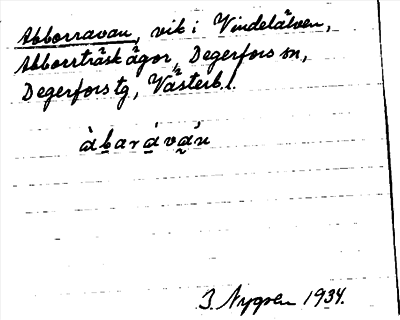 Abborravan, vik i Vindelälven,
Abborrträsk ägor, Degerfors sn,
Degerfors tg, Västerb. l.
àbarává̰n
J. Nygren 1934.